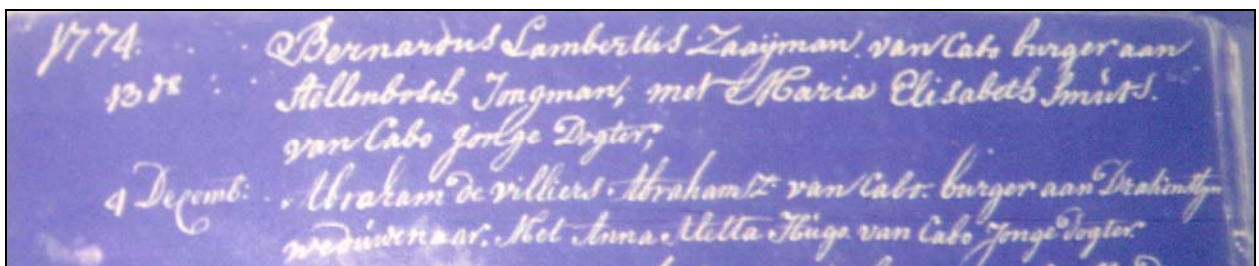 1774. Bernardus Lambertus Zaaijman van Cabo burger aan
13 ds Stellenbosch Jongman, met Maria Elisabeth Smuts.
van Cabo Jonge Dogter,
4 Decemb: Abraham de villiers Abrahamsz van Cabo. burger aan
weduwenaar. Met Anna Aletta Hugo van Cabo Jonge Dogter.